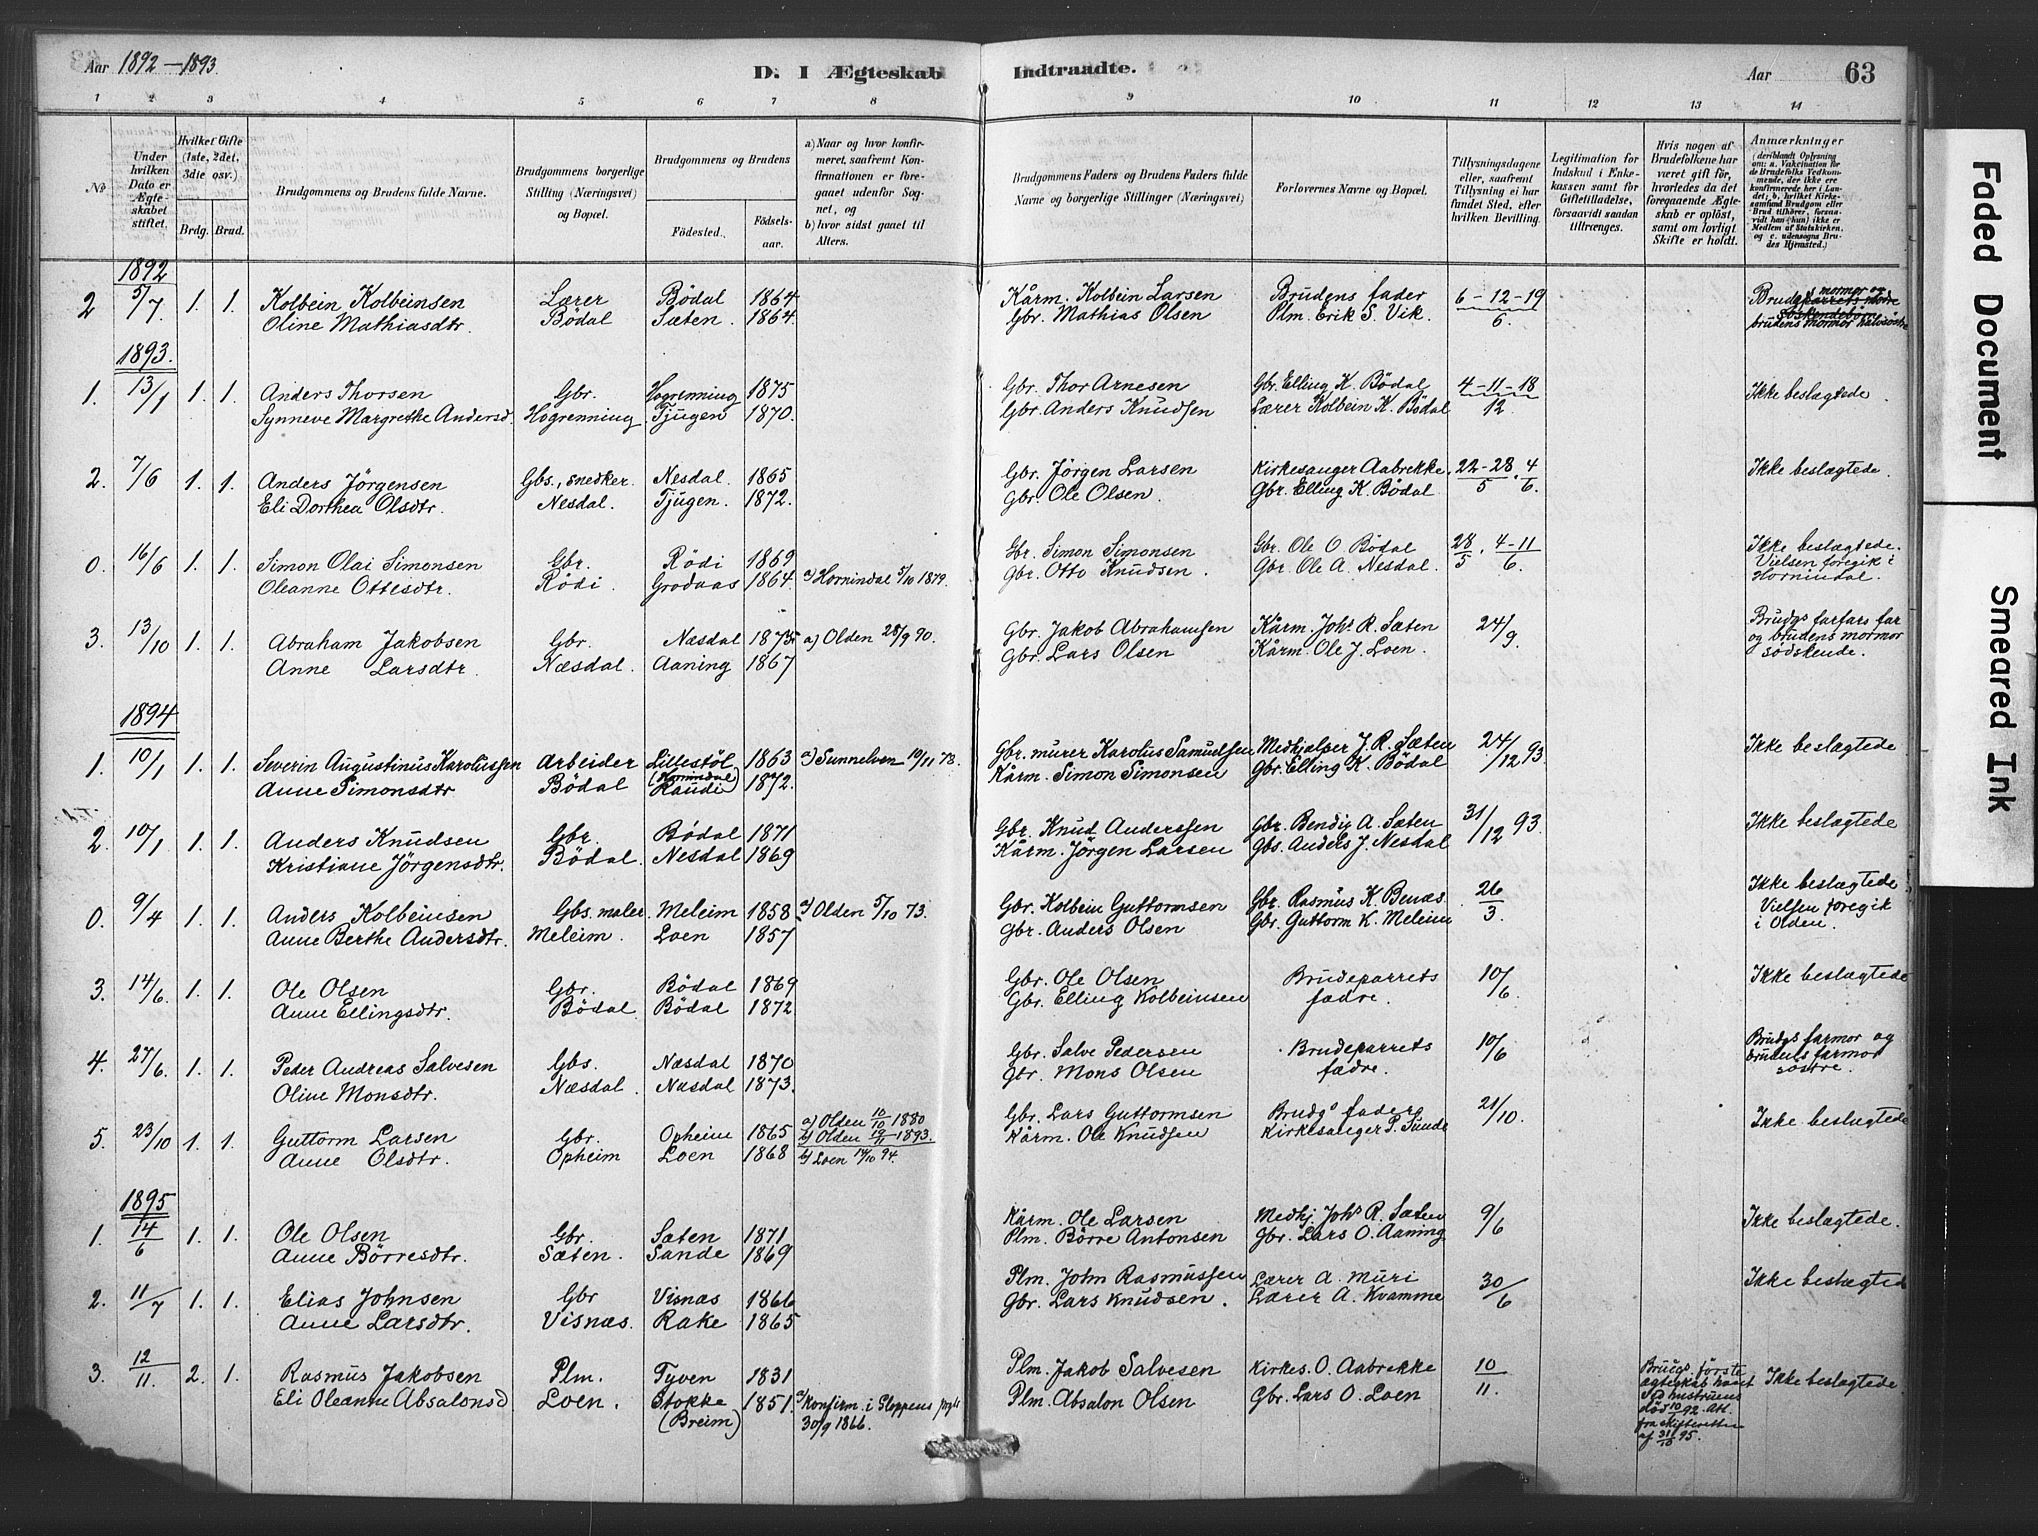 Aar 1892–1893. D. I Ægteskab Indtraadte. Aar 63
1 2 3 4 5 6 7 8 9 10 11 12 13 14
No
Under hvilken Dato er Ægteskabet stiftet.
Hvilket Gifte (1ste, 2det, 3die osv.)
Brdg. Brud.
Brudgommens og Brudens fulde Navne.
Brudgommens borgerlige Stilling (Næringsvei) og Bopæl.
Brudgommens og Brudens
Fødested. Fødselsaar.
a) Naar og hvor konfirmeret, saafremt Konfirmationen er foregaaet udenfor Sognet, og
b) hvor sidst gaaet til Alters.
Brudgommens Faders og Brudens Faders fulde Navne og borgerlige Stillinger (Næringsvei)
Forlovernes Navne og Bopæl.
Tillysningsdagene eller, saafremt Tillysning ei har fundet Sted, efter hvilken Bevilling.
Legitimation for Indskud i Enkekassen samt for Giftetilladelse, forsaavidt saadan tiltrænges.
Hvis nogen af Brudefolkene har været gift før, hvorledes da det foregaaende Ægteskab er opløst, samt om lovligt Skifte er holdt.
Anmærkninger
(deriblandt Oplysning om: a. Vakcination for de Brudefolks Vedkommende, der ikke ere konfirmerede her i Landet; b. hvilket Kirkesamfund Brudgom eller Brud tilhører, forsaavidt han (hun) ikke er Medlem af Statskirken, og c. udensogns Brudes Hjemsted.)
1892
2 5/7 1. 1. Kolbein Kolbeinsen Lærer Bödal 1864 Kårm. Kolbein Larsen Brudens fader 6-12-19
Oline Mathiasdtr. Bödal Sæten. 1864. Gbr. Mathias Olsen Plm. Erik S. Vik. 6.
brudens mormor
1893.
1. 13/1 1. 1. Anders Thorsen Gbr. Hogrenning 1875 Gbr. Thor Arnesen Gbr. Elling K. Bödal 4-11-18 Ikke beslægtede.
Synneve Margrethe Andersd. Hogrenning Tjugen 1870. Gbr. Anders Knudsen Lærer Kolbein K. Bödal 12.
2. 7/6 1. 1. Anders Jörgensen Gbs., snedker. Nesdal. 1865 Gbr. Jörgen Larsen Kirkesanger Aabrekke. 22-28/5. 4/6. Ikke beslægtede.
Eli Dorthea Olsdtr. Nesdal. Tjugen. 1872. Gbr. Ole Olsen. Gbr. Elling K. Bödal
0. 16/6 1. 1. Simon Olai Simonsen Gbr. Rödi 1869 Gbr. Simon Simonsen Gbr. Ole O. Bödal 28/5. 4-11/6. Ikke beslægtede.
Oleanne Ottesdtr. Rödi. Grodaas 1864. a) Hornindal 5/10 1879. Gbr. Otto Knudsen. Gbr. Ole A. Nesdal. Vielsen foregik i Hornindal.
3. 13/10 1. 1. Abraham Jakobsen Gbr. Næsdal 1873 a) Olden 28/9 90. Gbr. Jakob Abrahamsen Kårm. Johs R. Sæten 24/9. Brudgs farfars far
Anne Larsdtr. Næsdal. Aaning. 1867 Gbr. Lars Olsen Kårm. Ole J. Loen. og brudens mormor södskende.
1894
1. 10/1 1. 1. Severin Augustinus Karolussen Arbeider Lillestöl 1863 a) Sunnelven 19/11 78. Gbr. murer Karolus Samuelsen Medhjælper J. R. Sæten 24/12 93. Ikke beslægtede
(Hornindal)
Anne Simonsdtr. Bödal Raudi 1872. Kårm. Simon Simonsen Gbr. Elling K. Bödal
2. 10/1 1. 1. Anders Knudsen Gbr. Bödal 1871 Gbr. Knud Anderssen Gbr. Bendix A. Sæten 31/12 93. Ikke beslægtede
Kristiane Jörgensdtr. Bödal. Nesdal 1869 Kårm. Jörgen Larsen Gbs. Anders J. Nesdal
0. 9/4 1. 1. Anders Kolbeinsen Gbs. maler. Meleim 1858. a) Olden 5/10 73. Gbr. Kolbein Guttormsen Gbr. Rasmus K. Benæs. 26/3. Ikke beslægtede
Anne Berthe Andersdtr. Meleim. Loen 1857 Gbr. Anders Olsen Gbr. Guttorm K. Meleim Vielsen foregik i Olden.
3. 14/6. 1. 1. Ole Olsen Gbr. Bödal 1869 Gbr. Ole Olsen Brudeparrets 10/6. Ikke beslægtede
Anne Ellingsdtr. Bödal Bödal 1872 Gbr. Elling Kolbeinsen fædre.
4. 27/6. 1. 1. Peder Andreas Salvesen Gbs. Næsdal 1870 Gbr. Salve Pedersen Brudeparrets 10/6 Brudgs farmor og
Oline Monsdtr. Næsdal. Næsdal 1873. Gbr. Mons Olsen fædre. brudens farmor söstre.
5. 23/10 1. 1. Guttorm Larsen Gbr. Opheim 1865 a) Olden 10/10 1880 b) Olden 19/11 1893. Gbr. Lars Guttormsen Brudgs fader 21/10. Ikke beslægtede
Anne Olsdtr. Opheim Loen 1868 b) Loen 14/10 94. Kårm. Ole Knudsen Kirkesanger P. Sunde
1895
1. 14/6 1. 1. Ole Olsen Gbr. Sæten 1871 Kårm. Ole Larsen Medhj. Johs R. Sæten 9/6 Ikke beslægtede.
Anne Börresdtr. Sæten. Sande 1869 Plm. Börre Antonsen Gbr. Lars O. Aaning
2. 11/7 1. 1. Elias Johnsen Gbr Visnæs 1866 Plm. John Rasmussen Lærer A. Muri 30/6 Ikke beslægtede
Anne Larsdtr. Visnæs. Rake 1865 Gbr. Lars Knudsen. Lærer A. Kvamme
3. 12/11. 2. 1. Rasmus Jakobsen Plm. Tyven 1831 Plm. Jakob Salvesen Kirkes. O. Aabrekke 10/11. Ikke beslægtede
Eli Oleanne Absalonsd Loen. Stokke (Breim) 1851. a) Konfirm. i Gloppens pgld 30/9 1866. Plm. Absalon Olsen Gbr. Lars O. Loen
Brudgs förste ægteskab hævet ved hustruens död 10/10 92. Att. fra skifteretten af 31/10 95.
Faded Document
Smeared Ink